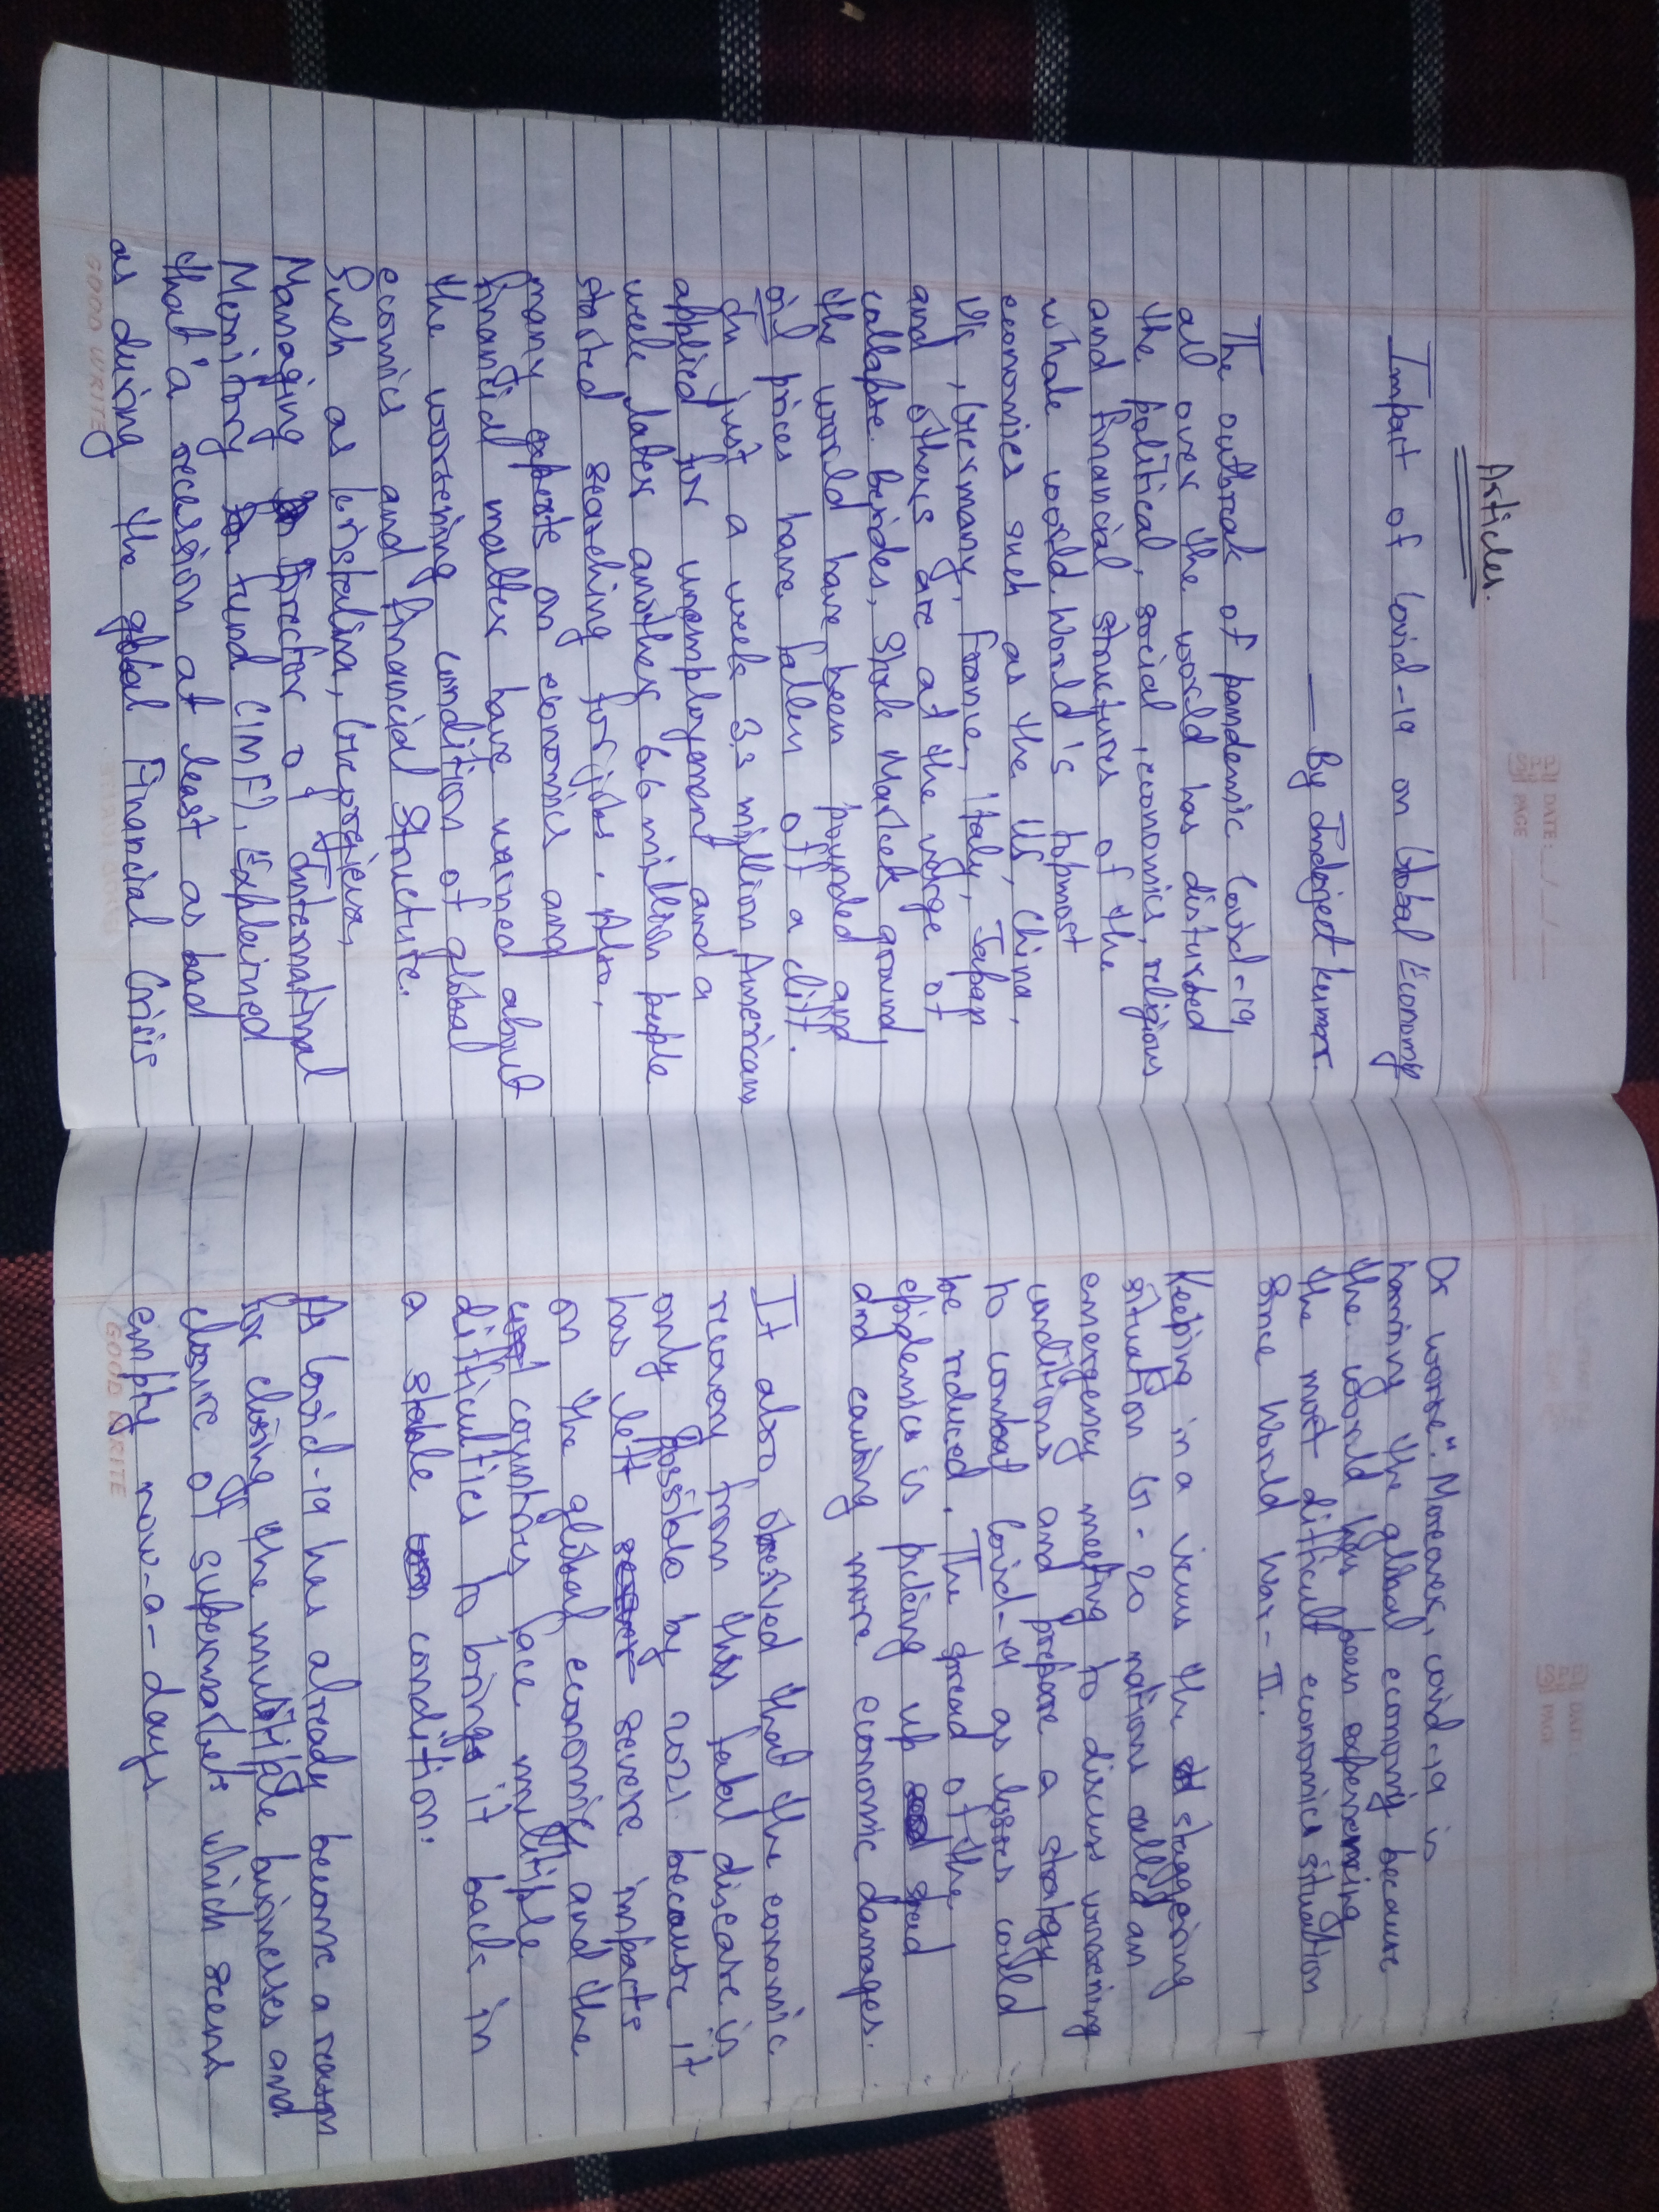 Articles.
Impact of Covid-19 on Global Economy
— By Indrojeet kumar.
The outbreak of pandemic Covid-19
all over the world has disturbed
the political, social, economics, religious
and financial structures of the
whole world. World's topmost
economies such as the US, China,
UK, Germany, France, Italy, Japan
and others are at the verge of
collapse. besides, Stock Markets around
the world have been pounded and
oil prices have fallen off a cliff.
In just a week 3.3 million Americans
applied for unemployment and a
week later another 6.6 million people
started searching for jobs. Also,
many experts on economics and
financial matter have warned about
the worsening condition of global
economics and financial Structure.
Such as kristalina, Georgieva,
Managing Director of International
Monitory fund (IMF), Explained
that 'a recession at least as bad
as during the global Financial Crisis
GOOD WRITE
SPP DATE: _/_/_
PAGE
Or worse". Moreover, covid-19 is
harming the global economy because
the world has been experiencing
the most difficult economics situation
Since World War-II.
Keeping in a view the staggering
situation G-20 nations called an
emergency meeting to discuss worsening
conditions and prepare a strategy
to combat Covid-19 as losses could
be reduced. The spread of the
epidemics is picking up speed
and causing more economic damages.
It also observed that the economic
recovery from this fatal disease is
only possible by 2021. because it
has left severe impacts
on the global economics and the
countries face multiple
difficulties to brings it back in
a stable condition.
As Covid-19 has already become a reason
for closing the multiple businesses and
closure of supermarkets which seems
empty now-a-days
GOOD WRITE
SPP DATE
PAGE